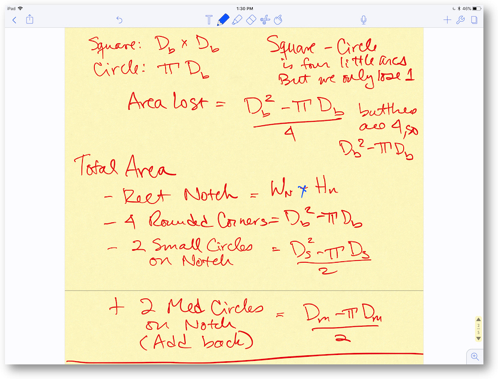 iPad
1:30 PM
48%
Square: D_b × D_b
Circle: π D_b
Square - Circle
is four little arcs
But we only lose 1
Area Lost = (D_b² - π D_b) / 4
but there
are 4, so
D_b² - π D_b
Total Area
- Rect Notch = W_N * H_N
- 4 Rounded Corners = D_b² - π D_b
- 2 Small Circles
on Notch = (D_s² - π D_s) / 2
+ 2 Med Circles
on Notch = (D_m - π D_m) / 2
(Add back)